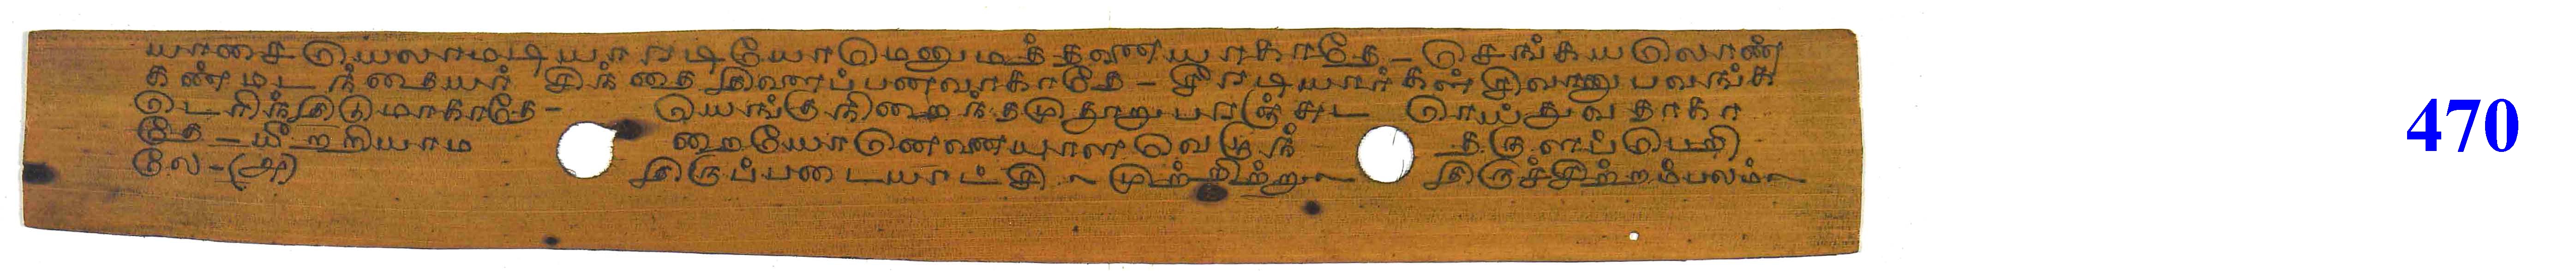 யாசையெலாமடியாரடியோமெனுமத்தனையாகாதே – செங்கயலொண்
கண்மடந்தையர் சிந்தை திளைப்பனவாகாதே – சீரடியார்கள் சிவானுபவங்க
டெரிந்திடுமாகாதே – யெங்குநிறைந்தமுதூறுபரஞ்சுட ரெய்துவதாகா
தே – யீறறியாம றையோனெனையாள வெழுந் தருளப்பெறி
லே – (அ) திருப்படையாட்சி ~ முற்றிற்று ~ திருச்சிற்றம்பலம் ~
470